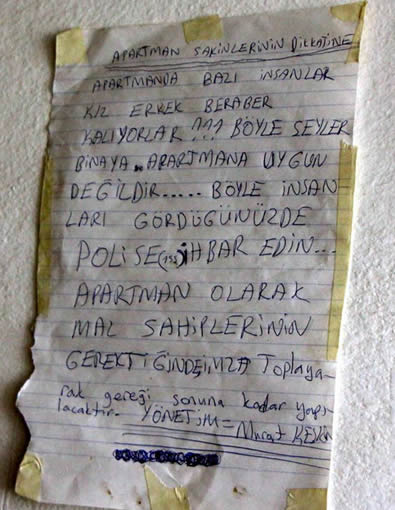 APARTMAN SAKİNLERİNİN DİKKATİNE
APARTMANDA BAZI İNSANLAR
KIZ ERKEK BERABER
KALIYORLAR ??? BÖYLE ŞEYLER
BİNAYA.. APARTMANA UYGUN
DEĞİLDİR..... BÖYLE İNSAN-
LARI GÖRDÜĞÜNÜZDE
POLİSE(155)İHBAR EDİN...
APARTMAN OLARAK
MAL SAHİPLERİNİN
GEREKTİĞİNDEİMZA Toplaya-
rak gereği sonuna kadar yapı-
lacaktır. YÖNETİM = Murat KESKİN